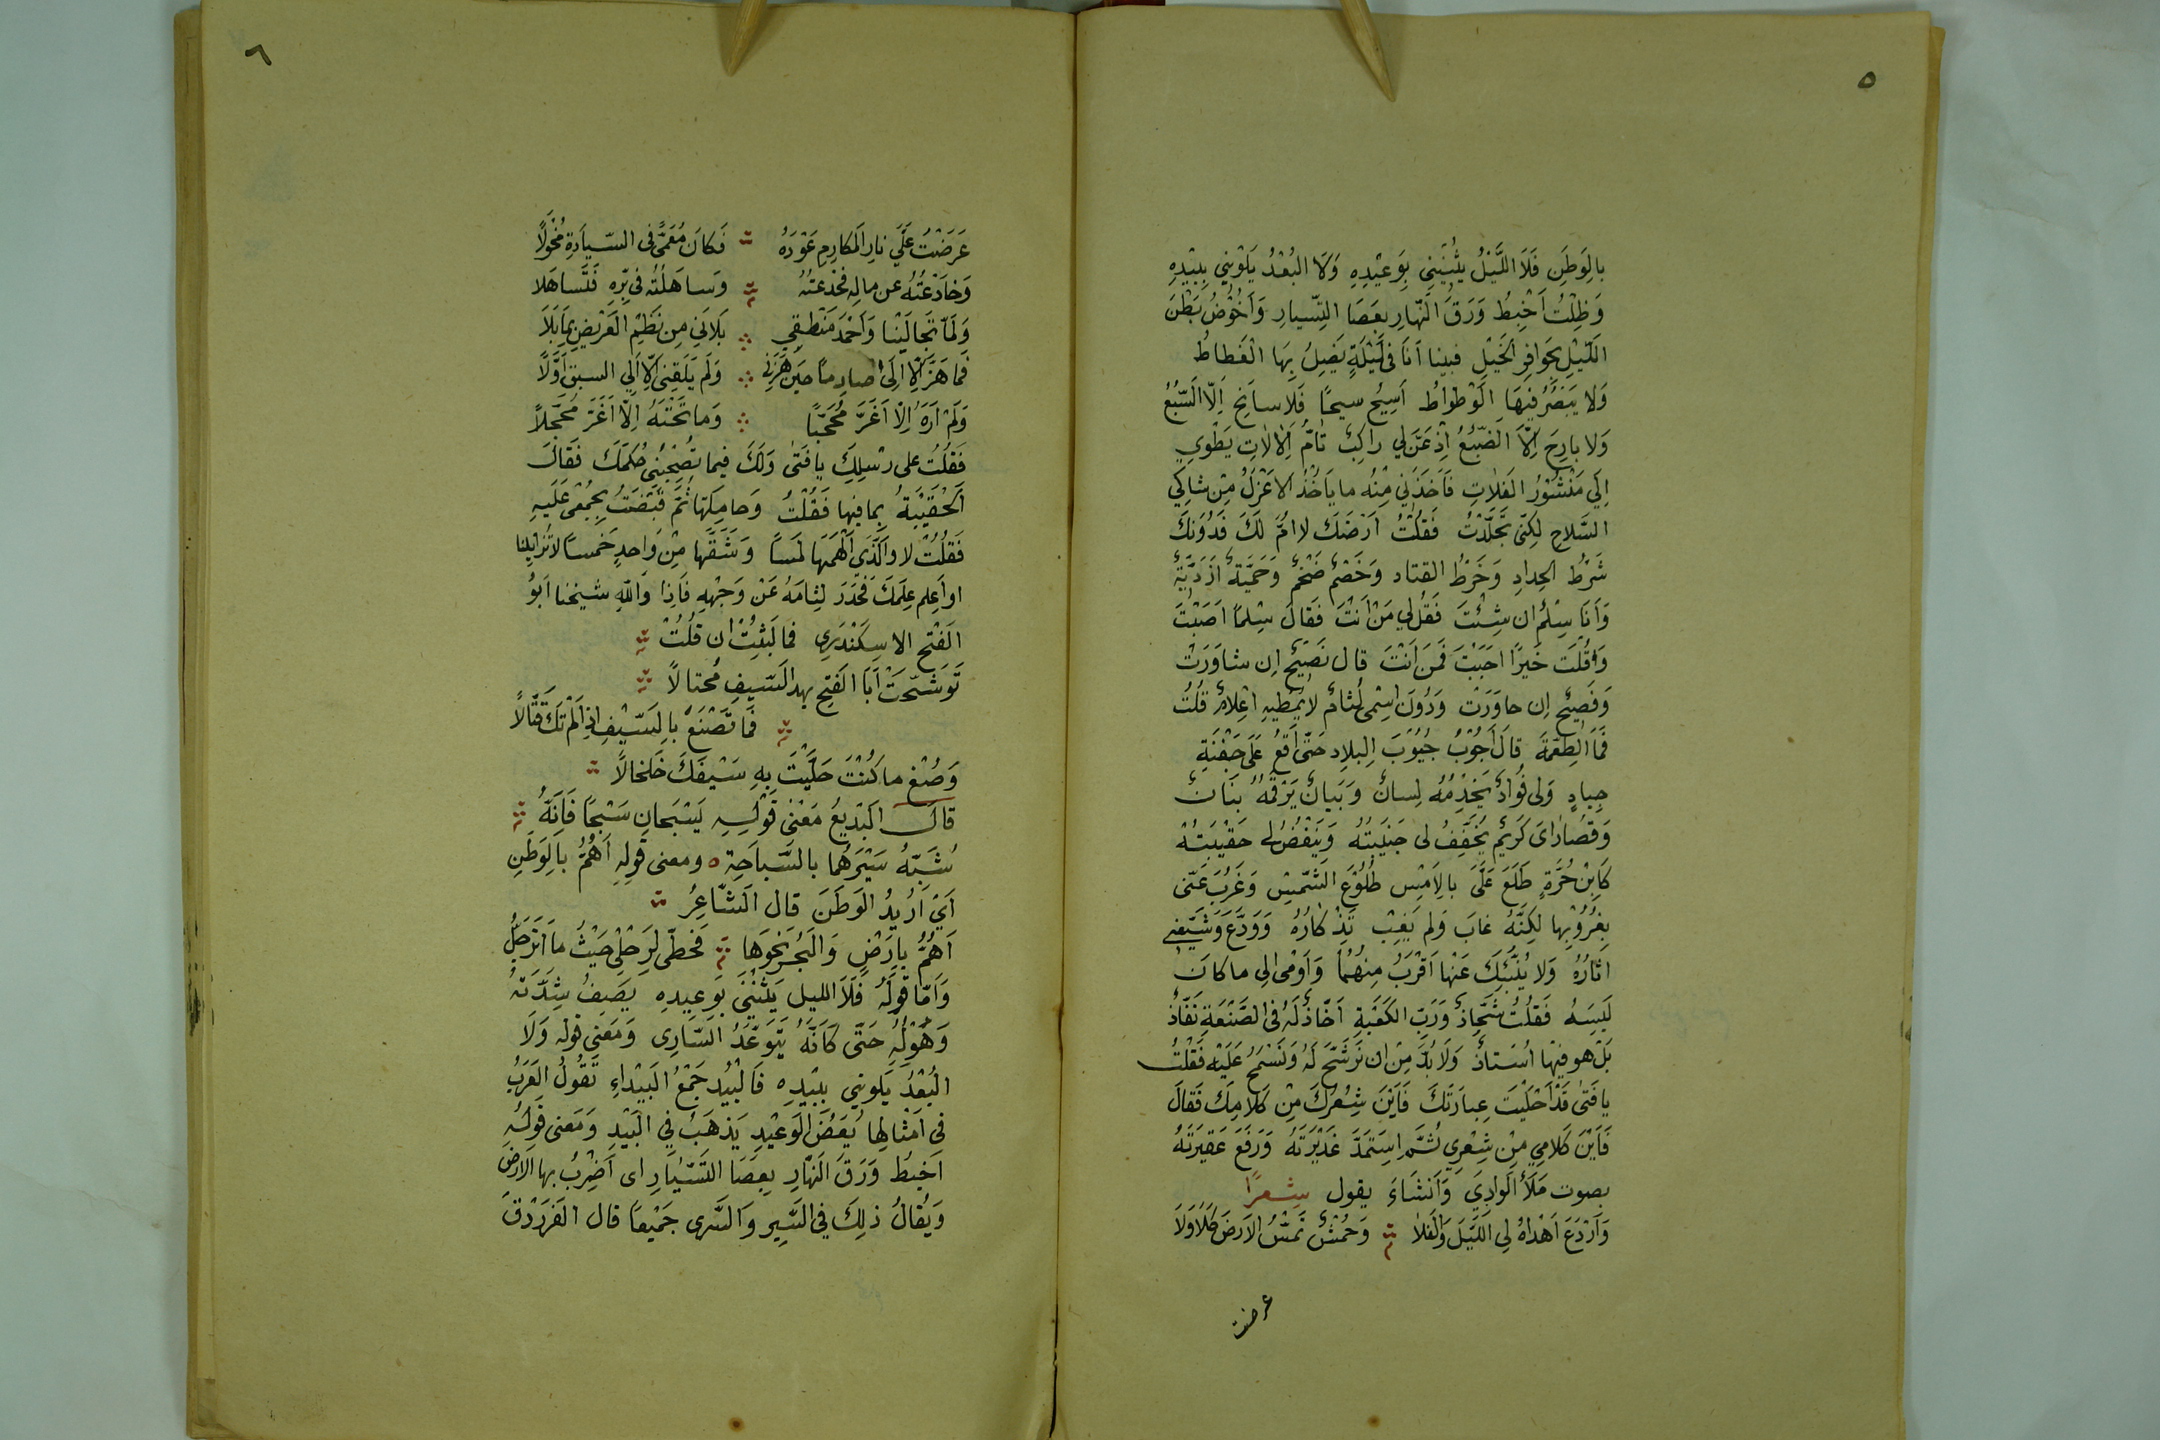 ٥
بِالوَطَنِ فَلَا اللَّيْلُ يَثْنِينِي بِوَعِيْدِهِ وَلَا البُعْدُ يَلْوِيْنِي بِبِيْدِهِ
وَظِلْتُ اَخْبِطُ وَرَقَ النَّهارِ بِعَصَا التِّسْيارِ وَاَخُوْضُ بَطْنَ
اللَّيْلِ بِحَوافِرِ الخَيْلِ فبينا اَنَا فِى لَيْلَةٍ يَضِلُّ بِهَا الْغَطاطُ
وَلا يَبْصُرُ فِيْهَا الْوَطْواطُ اَسِيْحُ سيحًا فَلا سانِحَ اِلّا السَّبُعُ
وَلا بارِحَ اِلَّا الضَّبُعُ اِذْ عَنَّ لِي راكِبٌ تامُّ اْلالاتِ يَطْوِي
اِلَي مَنْشُوْرُ الفَلاتِ فَاَخَذَنِي مِنْهُ ما يَاْخُذُ الاَعْزَلُ مِنْ شاكِي
السِّلاحِ لكِنِّى تَجَلَّدْتُ فَقُلْتُ اَرْضَكَ لا اُمَّ لَكَ فَدُوْنَكَ
شَرْطُ الحِدادِ وَخَرْطُ القتاد وَخَصْمٌ ضَخْمٌ وَحَمِيَّةٌ اَزْدِيَّةٌ
وَاَنَا سِلْمٌ ان شِئْتَ فَقُلْ لِي مَنْ اَنْتَ فَقَالَ سِلْمًا اَصَبْتَ
وَقُلْتَ خَيْرًا اَجَبْتَ فَمَنْ اَنْتَ قال نَصِيْحٌ اِن شاوَرْتَ
وَفَصِيْحٌ اِن حاوَرْتَ وَدُوْنَ اِسْمِى لُثامٌ لا يُمِيْطُه اَعْلامٌ قُلْتُ
فَمَا الطِعْمَةَ قالَ اَجُوْبُ جُيُوْبَ الِبلادِ حَتّى اَقَعُ عَلَى جَفْنَةِ
جِيادٍ وَلى فُوادٌ يَخْدِمُهُ لِسانٌ وَبَيانٌ يَرْقَمُهُ بِنَانٌ
وَقصُارٰاىَ كَرِيْمٌ يُخَفِّفُ لى جَنِيْبَتُهُ وَيَنْفُضُ لِي حَقِيْبَتُهُ
كَابْنِ حُرَّةٍ طَلَعَ عَلَيَّ بالاَمْسِ طُلُوْعَ الشَّمْسِ وَغَرُبَ عَنّى
بِغُرُوْبِها لكِنَّهُ غابَ وَلم يَغِبْ تَذْكارُهُ وَوَدَّعَ وَشَيَّعَنِي
اثارُهُ وَلا يُنَبِّئُكَ عَنْها اَقْرَبُ مِنهُما وَاَوْمى الى ما كانَ
لَبِسَهُ فَقُلْتُ شَحّاذٌ وَرَبِّ الكَعْبَةِ اَخّاذٌ لَهُ فى الصَّنْعَةِ نَفّاذٌ
بَلْ هو فيْها اُسْتاذٌ وَلَا بُدَّ مِنْ ان تَرَشَّحَ لَهُ وَتَسْمَحَ عَلَيْه فَقُلْتُ
يا فَتى قَدْ اَجْلَيْتَ عِبارَتَكَ فَاَيْنَ شِعْرُكَ مِنْ كَلامِكَ فَقالَ
فَاَيْنَ كَلامِي مِنْ شِعْرِي ثُمَّ اِسْتَمَدَّ غَدِيْرَتَهُ وَرَفَعَ عَقِيْرَتَهُ
بصوت مَلَأَ الوَادِيَ وَاَنْشَاءَ يقول شِعرًا
وَاَرْدَعَ اَهْداهُ لِي اللَّيْلَ وَالفَلا وَخُمْسٌ تَمَسُّ الارْضَ كَلَا وَلَا
عرضت
٦
عَرَضْتُ عَلَى نارِ المَكارِمِ عَوْدَهُ فَكانَ مُعَمًّى فى السِّيادَةِ مُخْوَلًا
وَخادَعْتُهُ عن مالِهِ فخَدَعْتُهُ وَساهَلْتُه فى بِرِّهِ فَتَّساهَلا
وَلَمّا تَجَالَيْنَا وَاَحْمَدَ مَنْطِقِى بَلَانِي مِن نَظِيْمِ القَرْيِضِ بِمَا بَلَا
فَما هَزَّ اِلّا اِلَىَّ صارِمًا حِيْنَ هَزَّنِي وَلَمْ يَلْقِنِى اِلّا اِلَى السبق اَوَّلًا
وَلَمْ اَرَهُ اِلّا اَغَرَّ مُحَجَّبًا وَما تَحْتَهُ اِلّا اَغَرَّ مُحَجَّلًا
فَقُلْتُ على رِسْلِكَ يا فَتى وَلَكَ فيما تُصْحِبُنِى حُكْمُكَ فَقَالَ
اَلحَقِيْبَةُ بِما فيها فَقُلْتُ وَحامِلَتها ثُمَّ قَبَضْتُ بِجُمْعى عَلَيهِ
فَقُلْتُ لا والَّذِي اَلْهَمَها لَمْسًا وَشَقَّها مِنْ وَاحِدٍ خمسًا لا تُزايِلنا
او اَعلم عِلْمَكَ فَحَدَرَ لِثامَهُ عَنْ وَجْهِهِ فَاِذا وَاللّهِ شيخُنا اَبُوُ
الفَتْحِ الاِسكَنْدَرِي فما لَبِثْتُ ان قُلْتُ
تَوَشَّحْتَ اَبَا الفَتْحِ بهذا السَّيفِ مُختالًا
فَما تَصْنَعُ بِالسَّيْفِ اِذا لَمْ تَكُ قَتّالًا
وَصُغْ ما كُنْتَ حَلَّيْتَ بِهِ سَيْفَكَ خَلخالًا
قالَ البَدِيْعُ مَعْنى قَوْلِهِ يَسْبَحانِ سَبْحًا فَاِنَّهُ
شَبَّهَ سَيْرَهُما بالسِّباحَةِ ٥ ومعنى قولِهِ اَهُمُّ بالوَطَنِ
اَيْ اُرِيدُ الوَطَنَ قال الشَّاعِرُ
اَهُمُّ بِارْضٍ وَالبُجَرْ نَحْوَها فَخطّى لِرَحْلِى حَيْثُ ما اَتَرَحَّلُ
وَاَمّا قَوْلُهُ فَلَا الليل يَثْنِيْنِى بوعِيدِه يَصِفُ شِدَّتَهُ
وَهَوْلَهُ حَتّى كَاَنَّهُ يَتَوَعَّدُ السّارِى وَمَعنى قوله وَلَا
البُعْدُ يَلْوِينِي بِبِيْدِه فَالبْيِدُ جَمْعُ البَيْداءِ تَقُوْلُ العَرَبُ
فى اَمْثالِها بَعْضُ الوَعْيِدِ يَذْهَبُ فِي البْيِدِ وَمَعْنى قَوْلِهِ
اَخبِطُ وَرَقَ النَّهارِ بِعَصَا التَّسْيارِ اى اَضْرِبُ بها الاَرْضَ
وَيُقالُ ذلِكَ في السَّيرِ وَالسُّرى جَمْيِعًا قال الفَرَزْدَق